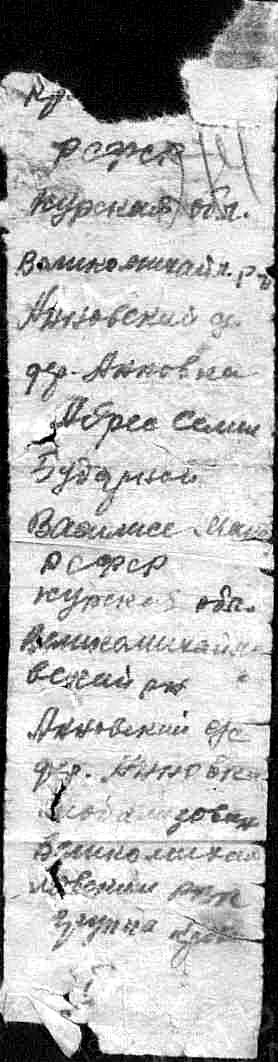 Кр
РСФСР
Курская обл.
Великомихайл. р-н
Анновский с/
дер. Анновка
Адрес семьи
Бударной
Василисе
РСФСР
Курская обл.
Великомихайло
вский рн
Анновский с/с
дер. Анновка
Мобилизован
Великомихай
ловский рвк
Группа кров